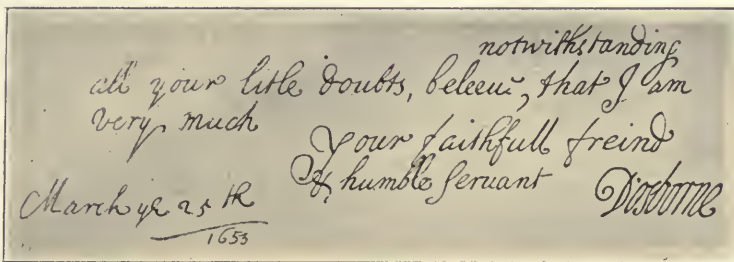 notwithstanding
all your litle doubts, beleeue, that I am
very much
your faithfull freind
& humble servant
DOsborne
March ye 25th
1653